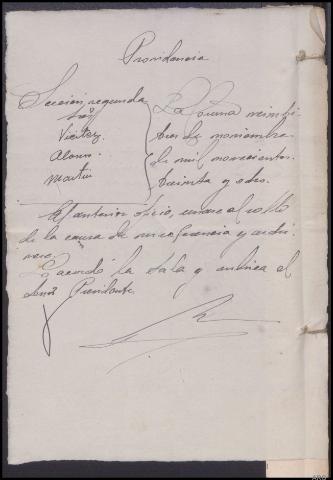 Providencia
Sección segunda
Sres
Vieitez
Alonso
Martin
La Coruna veinti
tres de noviembre
de mil novecientos
treinta y ocho.
El anterior oficio, unase al rollo
de la causa de su referencia y archi
vese.
Lo acordó la Sala y rubrica el
Señor Presidente